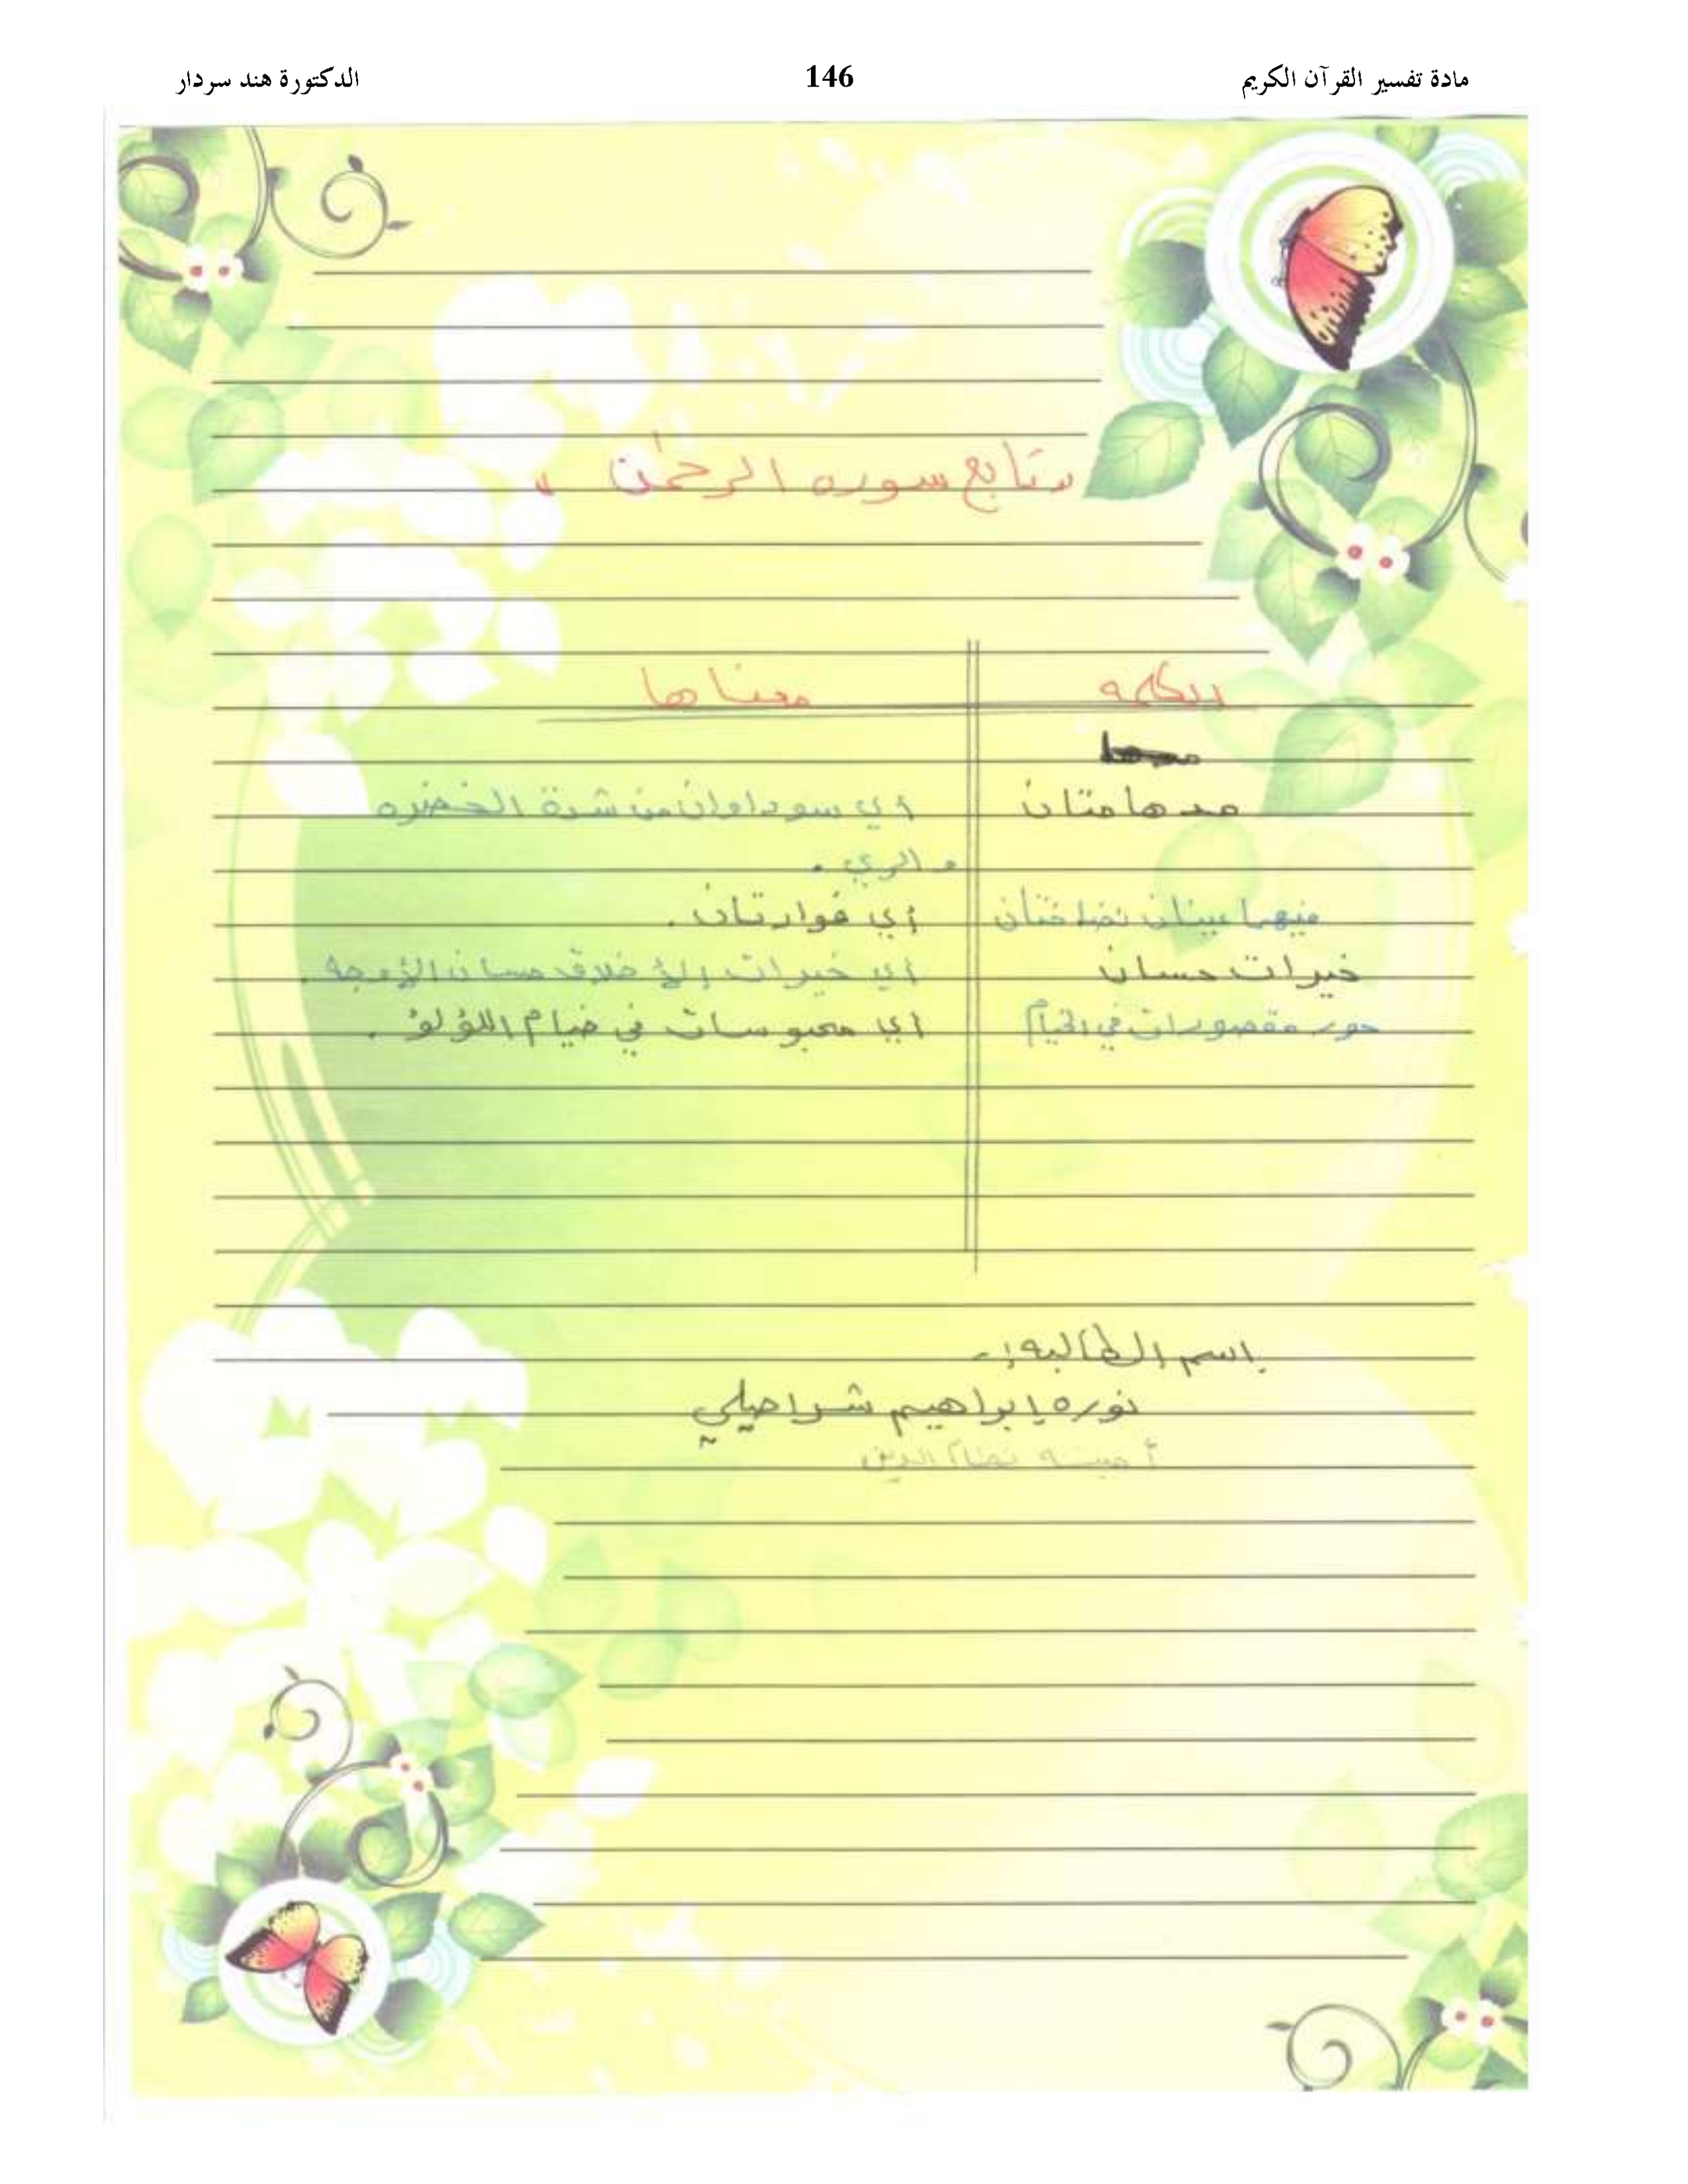 مادة تفسير القرآن الكريم 146 الدكتورة هند سردار
تابع سوره الرحمٰن
الكلمه معناها
مدهامتان أي سوداوان من شدة الخضره
والري .
فيهما عينان نضاختان أي فوارتان .
خيرات حسان أي خيرات الأخلاق حسان الأوجه .
حور مقصورات في الخيام أي محبوسات في خيام اللؤلؤ .
إسم الطالبه :-
نوره إبراهيم شراحيلي
أمينه نظام الدين